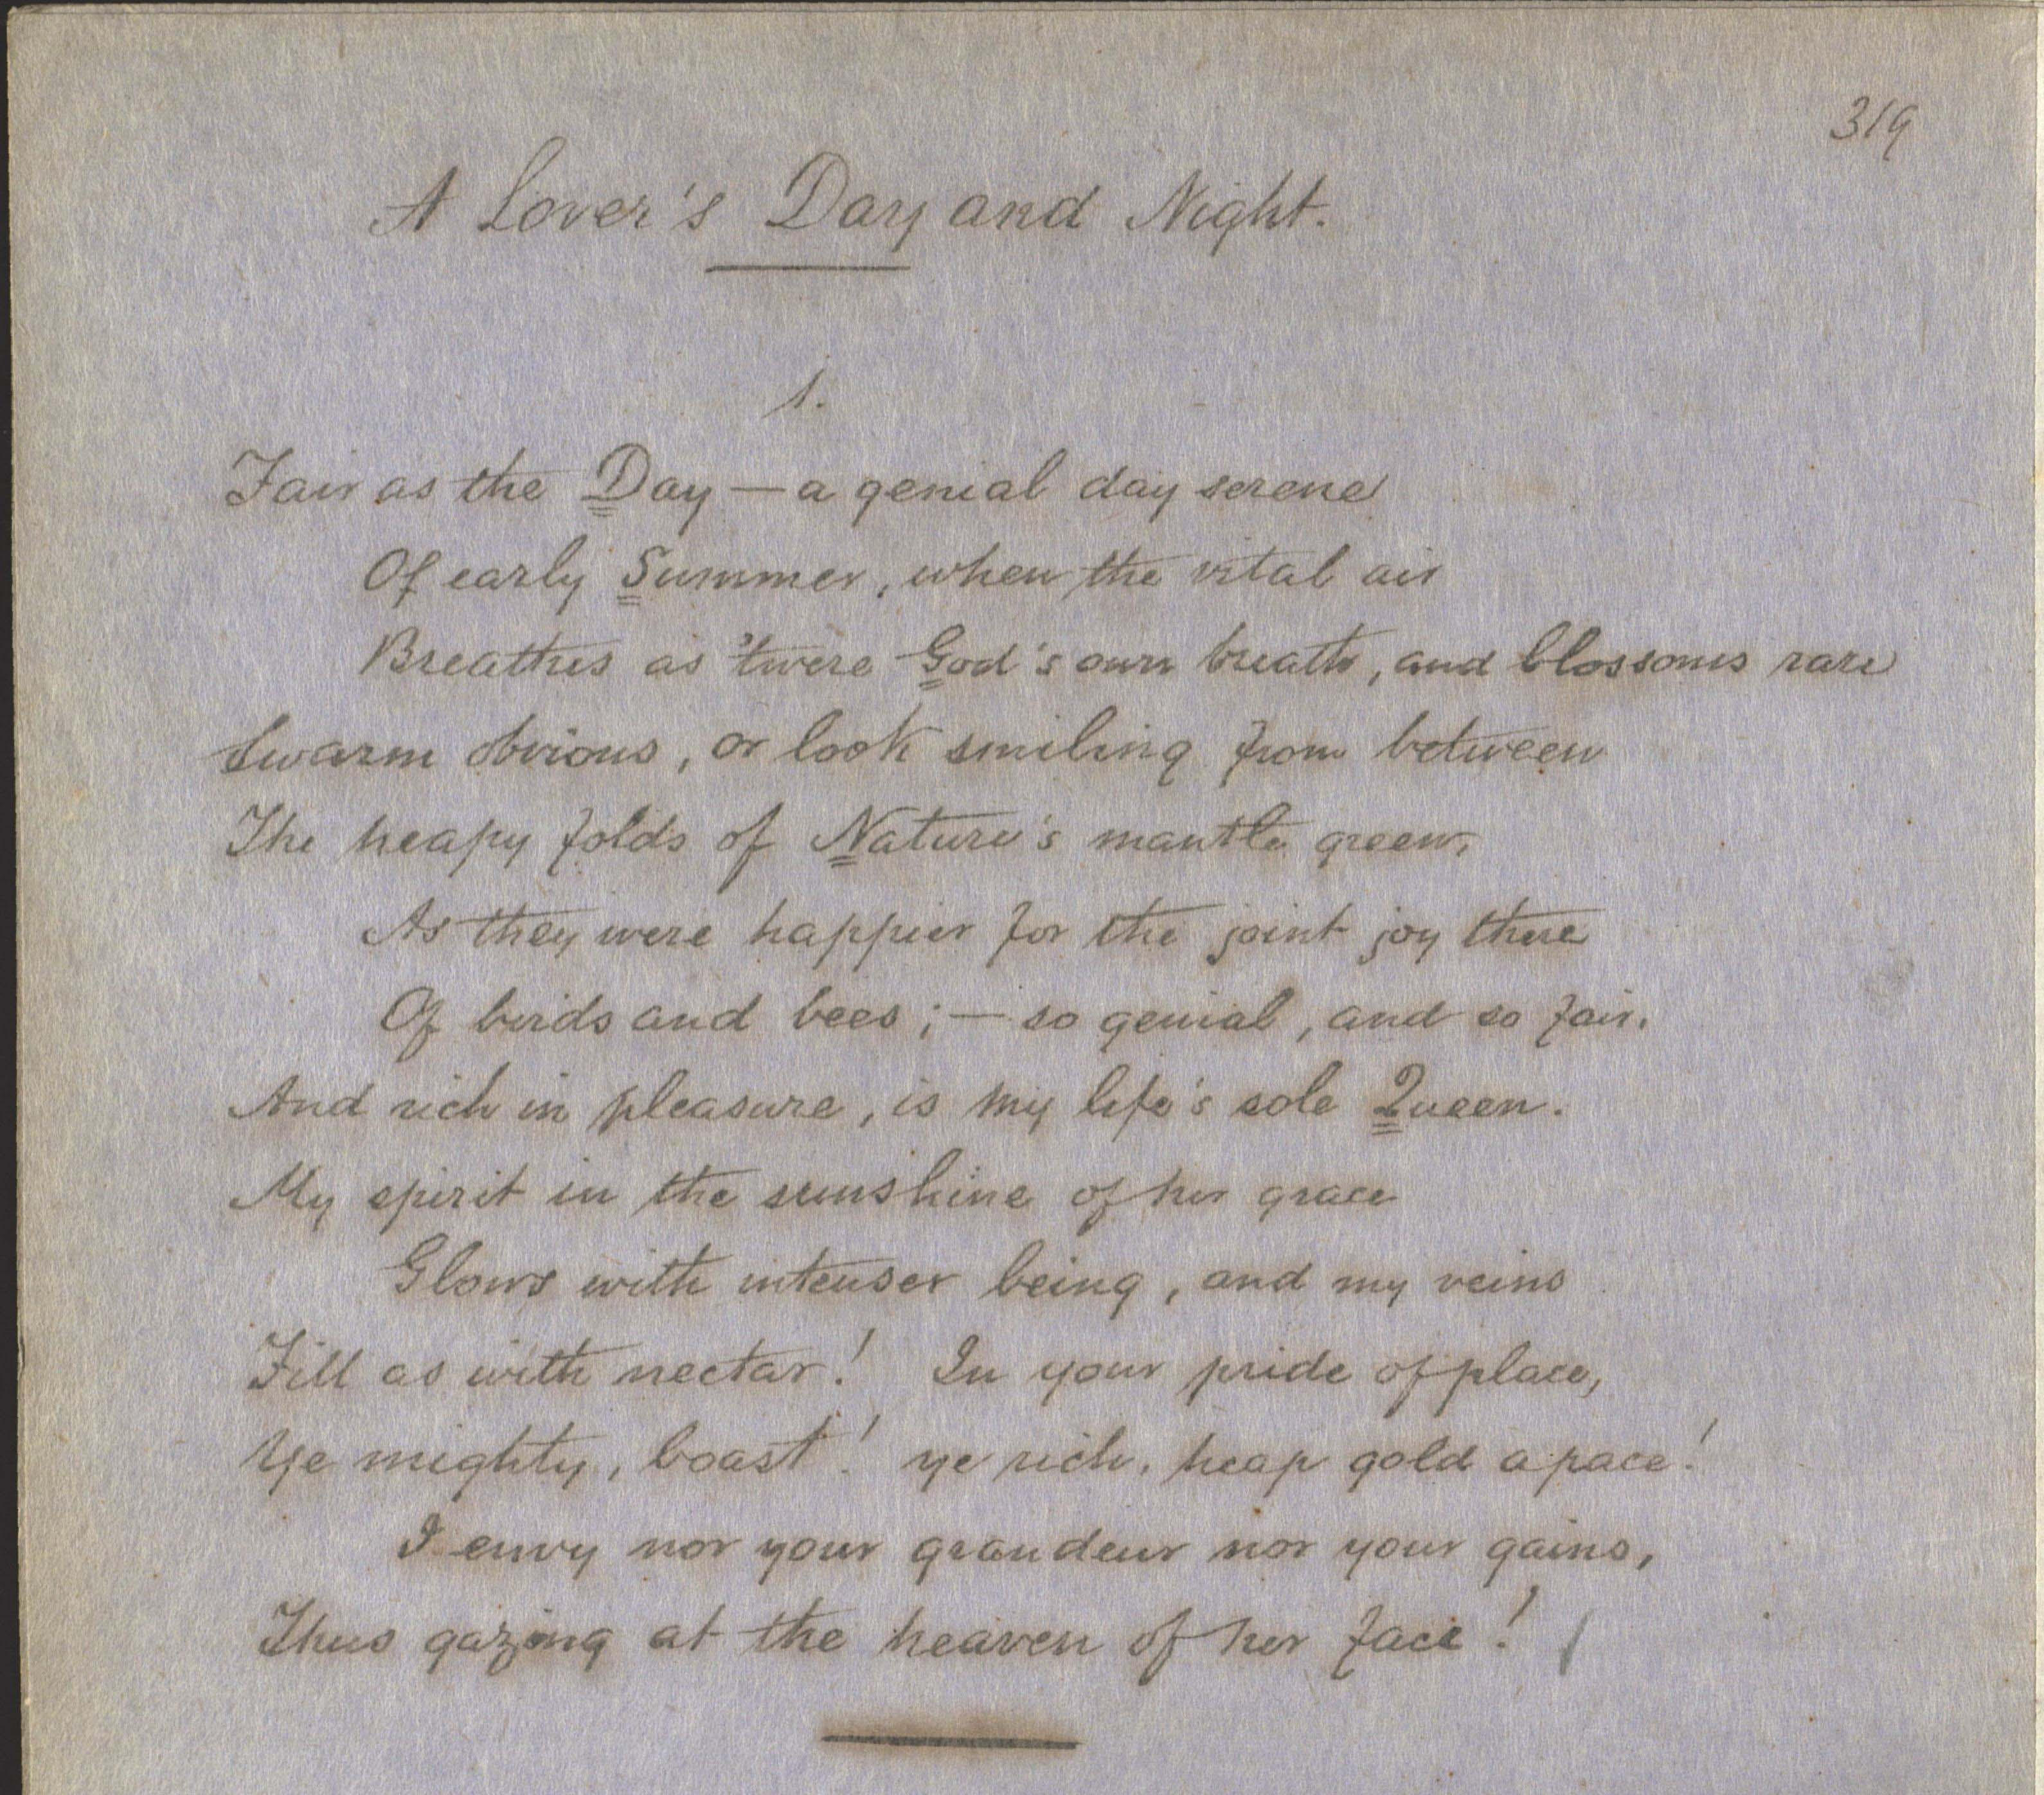 319
A Lover's Day and Night.
1.
Fair as the Day — a genial day serene
Of early Summer, when the vital air
Breathes as 'twere God's own breath, and blossoms rare
Swarm obvious, or look smiling from between
The heapy folds of Nature's mantle green,
As they were happier for the joint joy there
Of birds and bees; — so genial, and so fair,
And rich in pleasure, is my life's sole Queen.
My spirit in the sunshine of her grace
Glows with intenser being, and my veins
Fill as with nectar! In your pride of place,
Ye mighty, boast! ye rich, heap gold apace!
I envy nor your grandeur nor your gains,
Thus gazing at the heaven of her face!